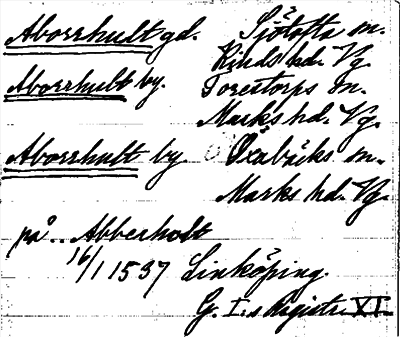 Aborrhult gd. Sjötofta sn.
Kinds hd. Vg.
Aborrhult by. Torestorps sn.
Marks hd. Vg.
Aborrhult by. Öxabäcks sn.
Marks hd. Vg.
på .. Abberholt
16/1 1537 Linköping.
G. I:s Registr. XI.